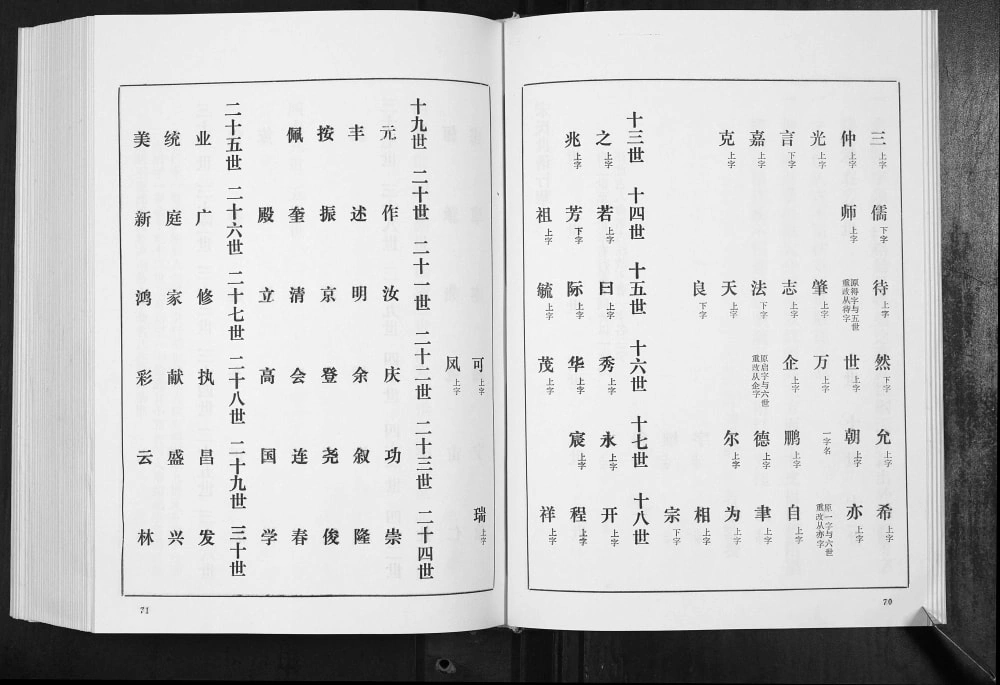 三上字 儒下字 待上字 然下字 允上字 希上字
仲上字 师上字 原得字与五世重改从待字 世上字 朝上字 亦上字
光上字 肇上字 万上字 一字名 原一字与六世重改从亦字
言下字 志上字 企上字 鹏上字 自上字
嘉上字 法下字 原启字与六世重改从企字 德上字 聿上字
克上字 天上字 尔上字 为上字
良下字 相上字
宗下字
十三世 十四世 十五世 十六世 十七世 十八世
之上字 若上字 曰上字 秀上字 永上字 开上字
兆上字 芳下字 际上字 华上字 宸上字 程上字
祖上字 毓上字 茂上字 祥上字
70
可上字 瑞上字
凤上字
十九世 二十世 二十一世 二十二世 二十三世 二十四世
元 作 汝 庆 功 崇
丰 述 明 余 叙 隆
按 振 京 登 尧 俊
佩 奎 清 会 连 春
殿 立 高 国 学
二十五世 二十六世 二十七世 二十八世 二十九世 三十世
业 广 修 执 昌 发
统 庭 家 献 盛 兴
美 新 鸿 彩 云 林
71